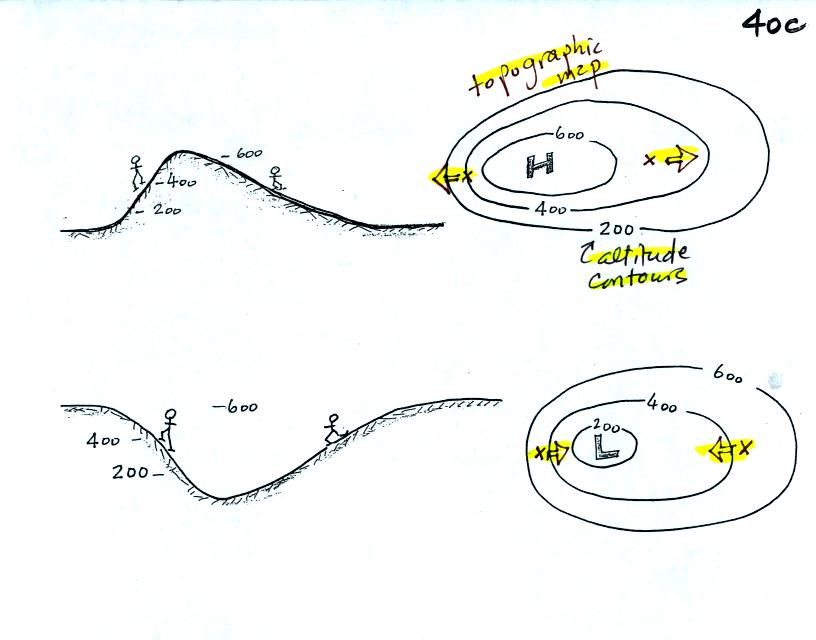 40c
topographic
map
600
400
200
600
H
x
x
400
200
altitude
contours
600
400
200
600
400
200
L
x
x